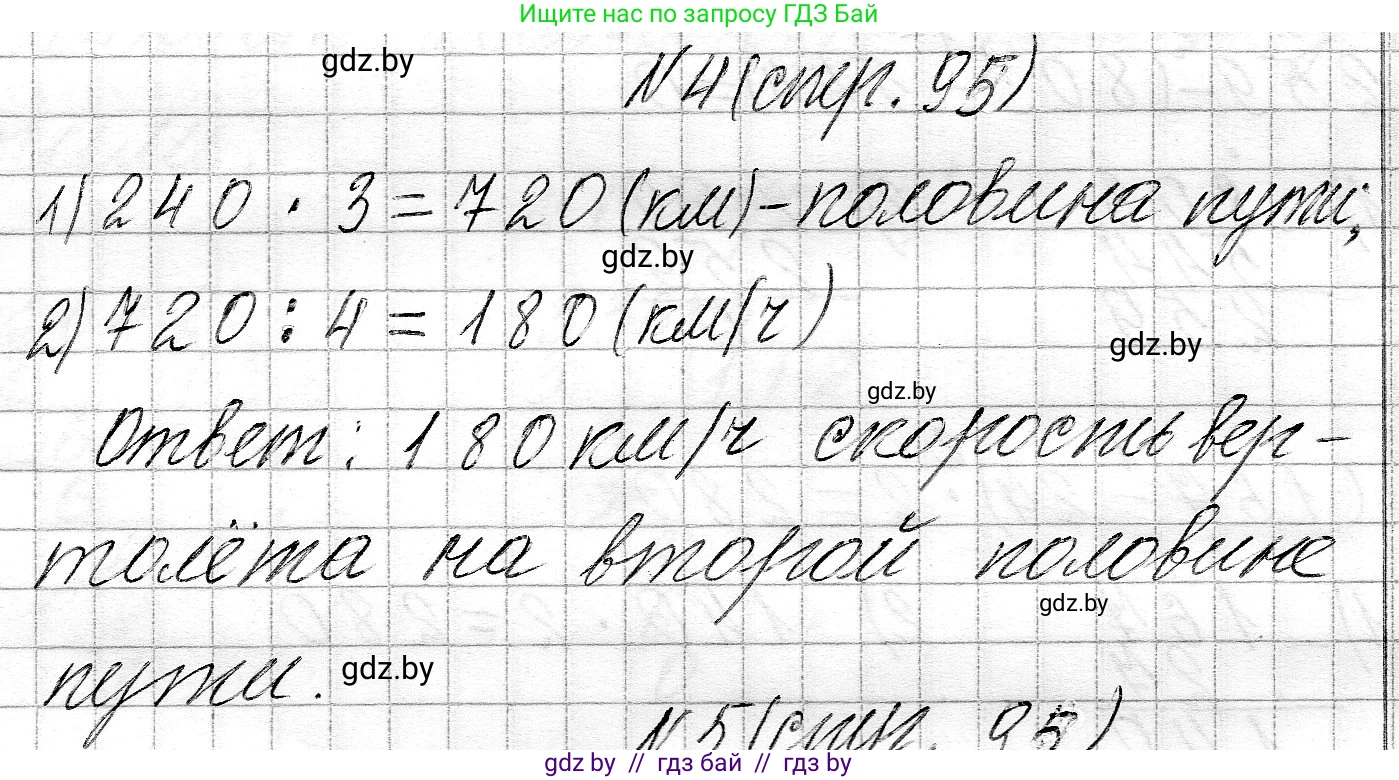 Ищите нас по запросу ГДЗ Бай
gdz.by
№4 (стр. 95)
1) 240 · 3 = 720 (км) - половина пути;
gdz.by
2) 720 : 4 = 180 (км/ч)
gdz.by
gdz.by
Ответ: 180 км/ч скорость вер-
толёта на второй половине
gdz.by
пути.
gdz.by
№5 (стр. 95)
gdz by // гдз бай // гдз by